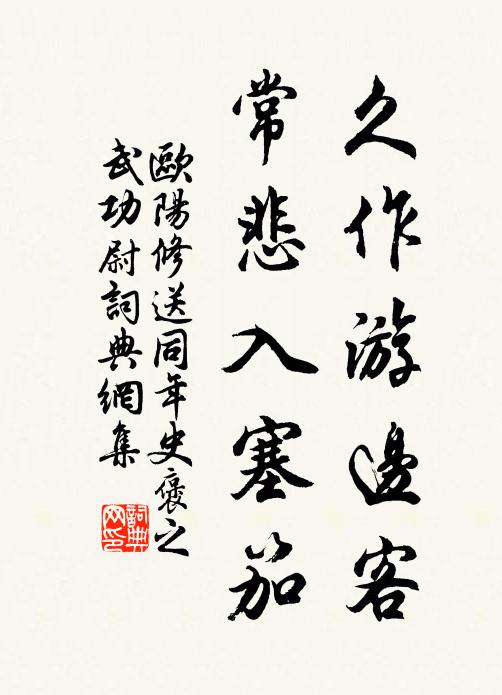 久作游邊客
常悲入塞笳
歐陽修送同年史褒之
武功尉詞典網集
詞典
网印